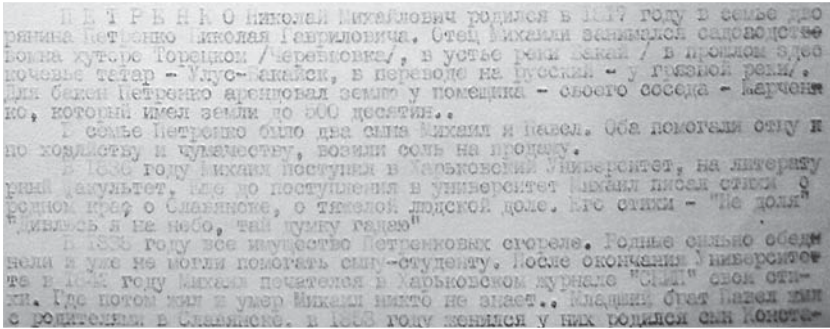 П Е Т Р Е Н К О Николай Михайлович родился в 1817 году в семье дво
рянина Петренко Николая Гавриловича. Отец Михаила занимался садоводство
вомна хуторе Торецком /Черевковка/, в устье реки Бакай / в прошлом здес
кочевье татар - Улус-Бакайск, в переводе на русский - у грязной реки/.
Для бакен Петренко арендовал землю у помещика - своего соседа - Марченк
ко, который имел земли до 800 десятин..
В семье Петренко было два сына Михаил и Павел. Оба помогали отцу и
по хозяйству и чумачеству, возили соль на продажу.
В 1836 году Михаил поступил в Харьковский Университет, на литерату
рный факультет. Еще до поступления в университет Михаил писал стихи о
родном крае, о Славянске, о тяжелой людской доле. Его стихи - "Не доля"
"Дивлюсь я на небо, тай думку гадаю"
В 1838 году все имущество Петренковых сгорело. Родные сильно обедн
нели и уже не могли помогать сыну-студенту. После окончания Университет
та в 1841 году Михаил печатался в Харьковском журнале "СНИП" свои сти-
хи. Где потом жил и умер Михаил никто не знает.. Младший брат Павел жил
с родителями в Славянске. в 1853 году женился у них родился сын Конста-